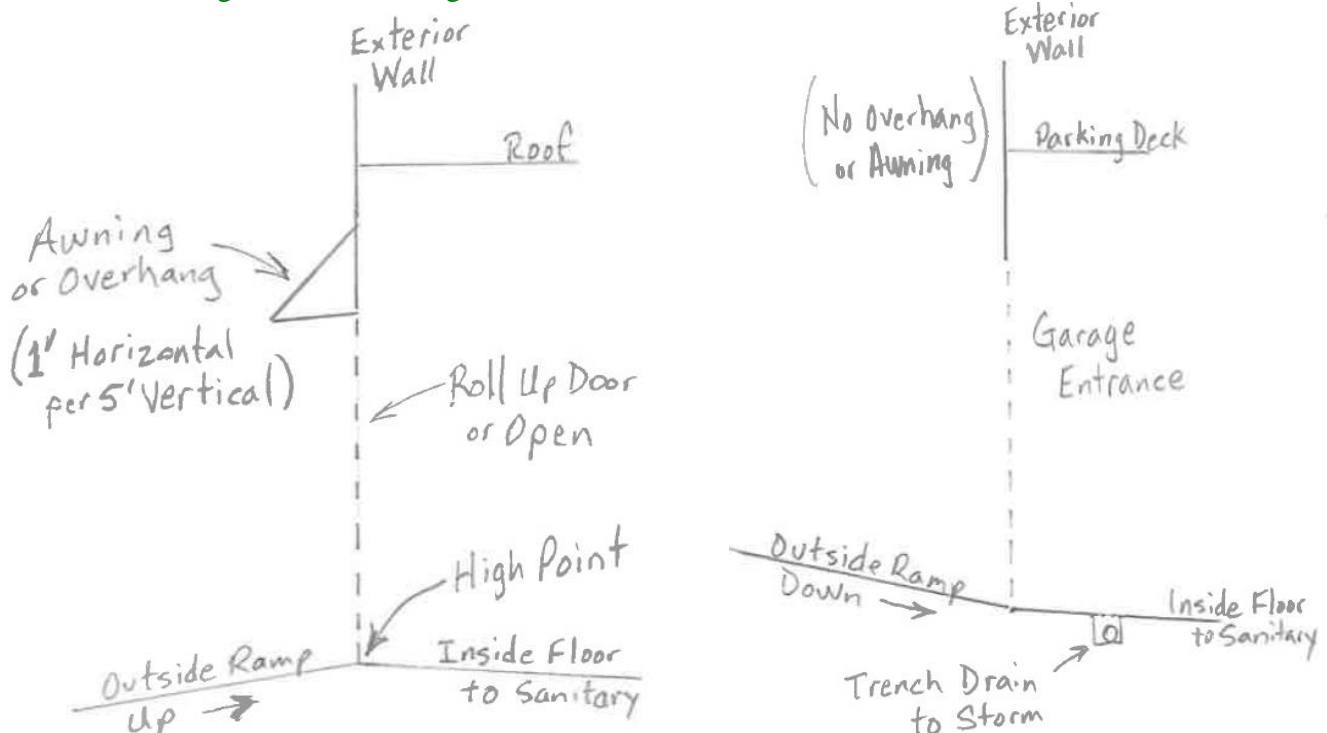 Exterior
Wall
Roof
Awning
or Overhang
(1' Horizontal
per 5' Vertical)
Roll Up Door
or Open
High Point
Outside Ramp
Up
Inside Floor
to Sanitary
Exterior
Wall
(No Overhang
or Awning)
Parking Deck
Garage
Entrance
Outside Ramp
Down
Inside Floor
to Sanitary
Trench Drain
to Storm